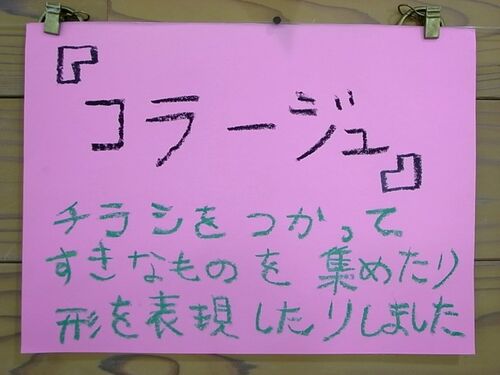 『コラージュ』
チラシをつかって
すきなものを集めたり
形を表現したりしました